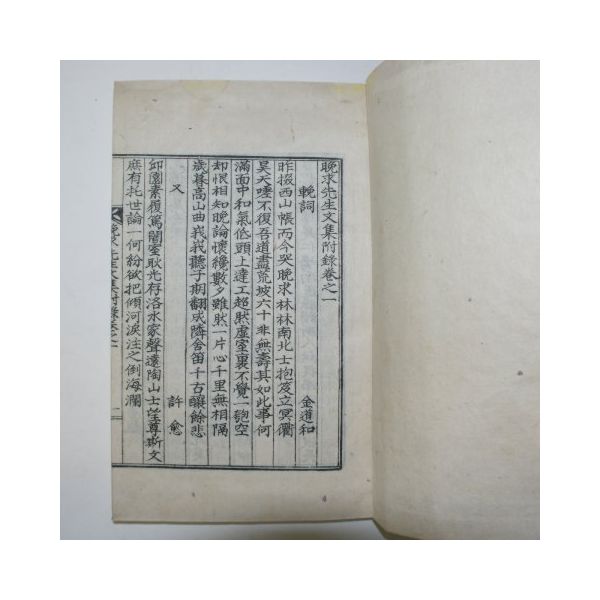 晩求先生文集附錄卷之一
輓詞 金道和
昨掇西山帳而今哭晩求林林南北士抱笈立冥衢
昊天噫不復吾道盡荒坡六十非無壽其如此事何
滿面中和氣低頭上達工超然虛室裏不覺一瓢空
却恨相知晩論懷纔數夕雖然一片心千里無相隔
歲暮高山曲峩峩聽子期翻成隣舍笛千古釀餘悲
又 許愈
邱園素履篤闇室耿光存洛水家聲遠陶山士望尊斯文
庶有托世論一何紛欲把傾河淚注之倒海瀾
晩求先生文集附錄卷之一 一